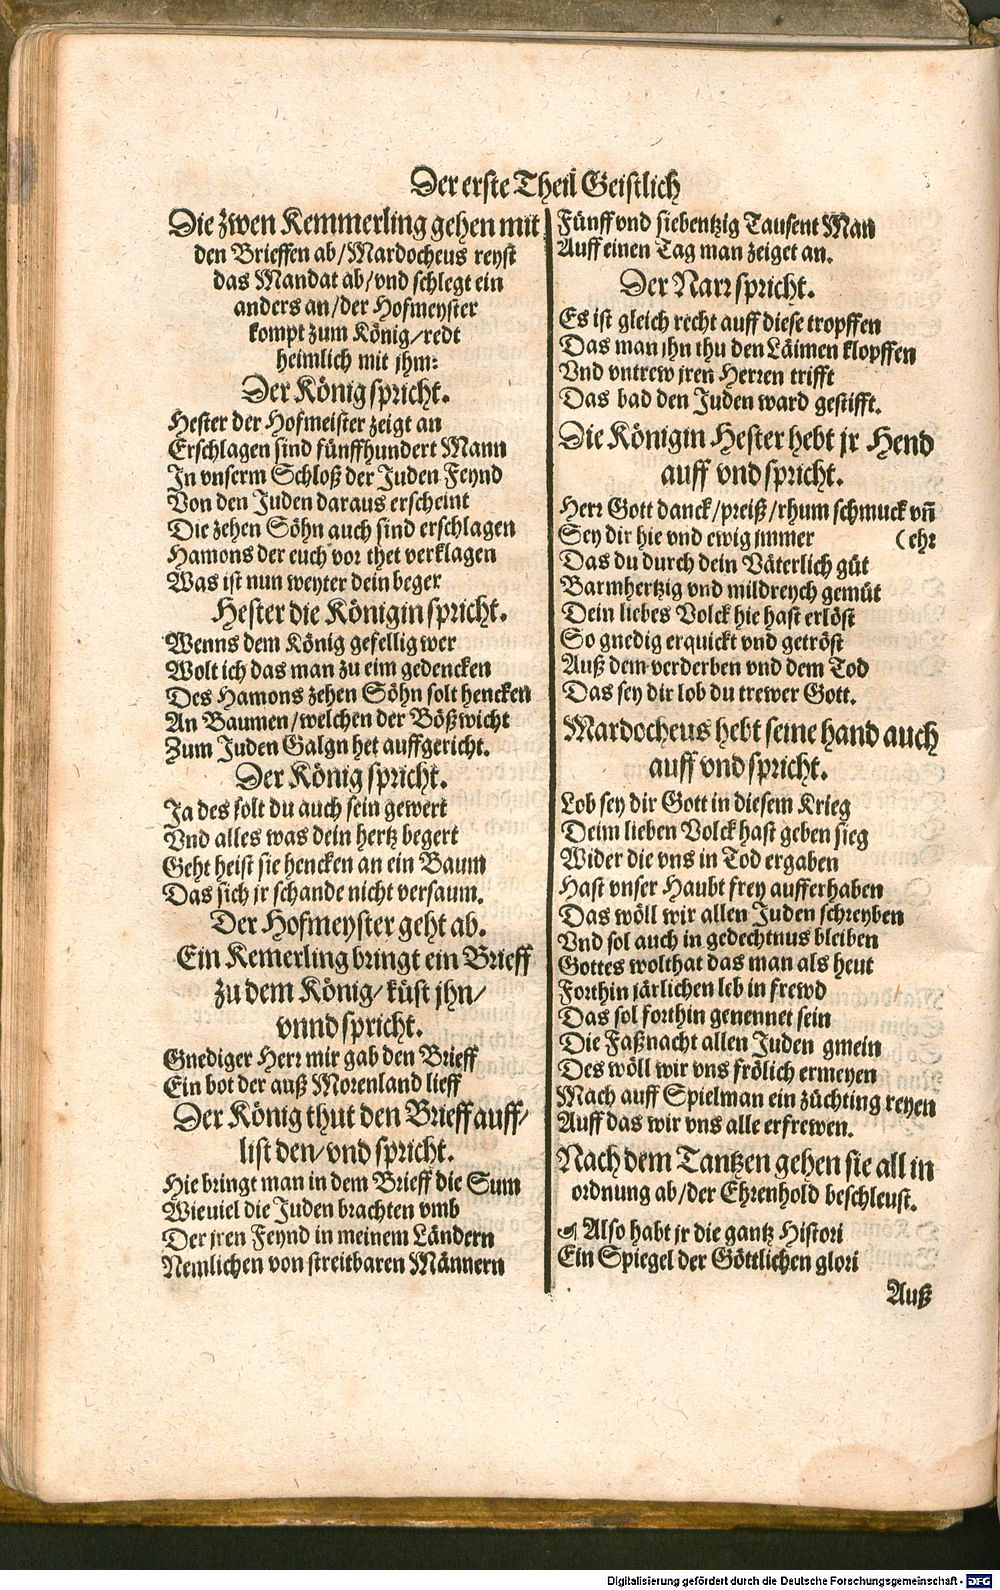 Der erste Theil Geistlich
Die zwen Kemmerling gehen mit
den Brieffen ab/Mardocheus reyst
das Mandat ab/vnd schlegt ein
anders an/der Hofmeyster
kompt zum König/redt
heimlich mit jhm:
Der König spricht.
Hester der Hofmeister zeigt an
Erschlagen sind fünffhundert Mann
In vnserm Schloß der Juden Feynd
Von den Juden daraus erscheint
Die zehen Söhn auch sind erschlagen
Hamons der euch vor thet verklagen
Was ist nun weyter dein beger
Hester die Königin spricht.
Wenns dem König gefellig wer
Wolt ich das man zu eim gedencken
Des Hamons zehen Söhn solt hencken
An Baumen/welchen der Bößwicht
Zum Juden Galgn het auffgericht.
Der König spricht.
Ja des solt du auch sein gewert
Vnd alles was dein hertz begert
Geht heist sie hencken an ein Baum
Das sich jr schande nicht versaum.
Der Hofmeyster geht ab.
Ein Kemerling bringt ein Brieff
zu dem König/küst jhn/
vnnd spricht.
Gnediger Herr mir gab den Brieff
Ein bot der auß Morenland lieff
Der König thut den Brieff auff/
list den/vnd spricht.
Hie bringt man in dem Brieff die Sum
Wieuiel die Juden brachten vmb
Der jren Feynd in meinem Ländern
Nemlichen von streitbaren Männern
Fünff vnd siebentzig Tausent Man
Auff einen Tag man zeiget an.
Der Narr spricht.
Es ist gleich recht auff diese tropffen
Das man jhn thu den Läimen klopffen
Vnd vntrew jren Herren trifft
Das bad den Juden ward gestifft.
Die Königin Hester hebt jr Hend
auff vnd spricht.
Herr Gott danck/preiß/rhum schmuck vn̄
Sey dir hie vnd ewig jmmer (ehr
Das du durch dein Väterlich güt
Barmhertzig vnd mildreych gemüt
Dein liebes Volck hie hast erlöst
So gnedig erquickt vnd getröst
Auß dem verderben vnd dem Tod
Das sey dir lob du trewer Gott.
Mardocheus hebt seine hand auch
auff vnd spricht.
Lob sey dir Gott in diesem Krieg
Deim lieben Volck hast geben sieg
Wider die vns in Tod ergaben
Hast vnser Haubt frey aufferhaben
Das wöll wir allen Juden schreyben
Vnd sol auch in gedechtnus bleiben
Gottes wolthat das man als heut
Forthin järlichen leb in frewd
Das sol forthin genennet sein
Die Faßnacht allen Juden gmein
Des wöll wir vns frölich ermeyen
Mach auff Spielman ein züchting reyen
Auff das wir vns alle erfrewen.
Nach dem Tantzen gehen sie all in
ordnung ab/der Ehrenhold beschleust.
☙ Also habt jr die gantz Histori
Ein Spiegel der Göttlichen glori
Auß
Digitalisierung gefördert durch die Deutsche Forschungsgemeinschaft - DFG